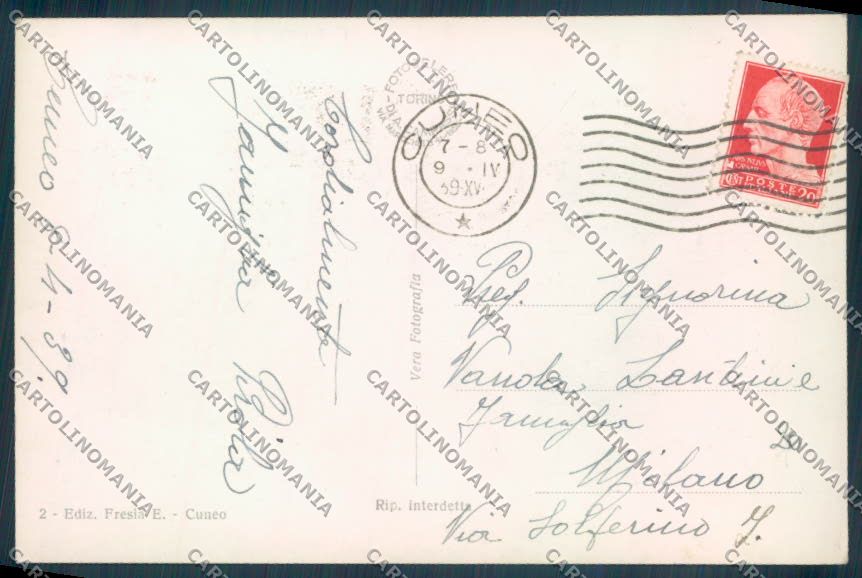 Cuneo 8-4-39
Cordialmente
Famiglia Viola
FOTO
TORINO
CUNEO
7 - 8
9 - IV
39-XV
POSTE 20
Vera Fotografia
Preg. Signorina
Vanda
Famiglia
Milano
Via Solferino 7.
2 - Ediz. Fresia E. - Cuneo
Rip. interdetta
CARTOLINOMANIA